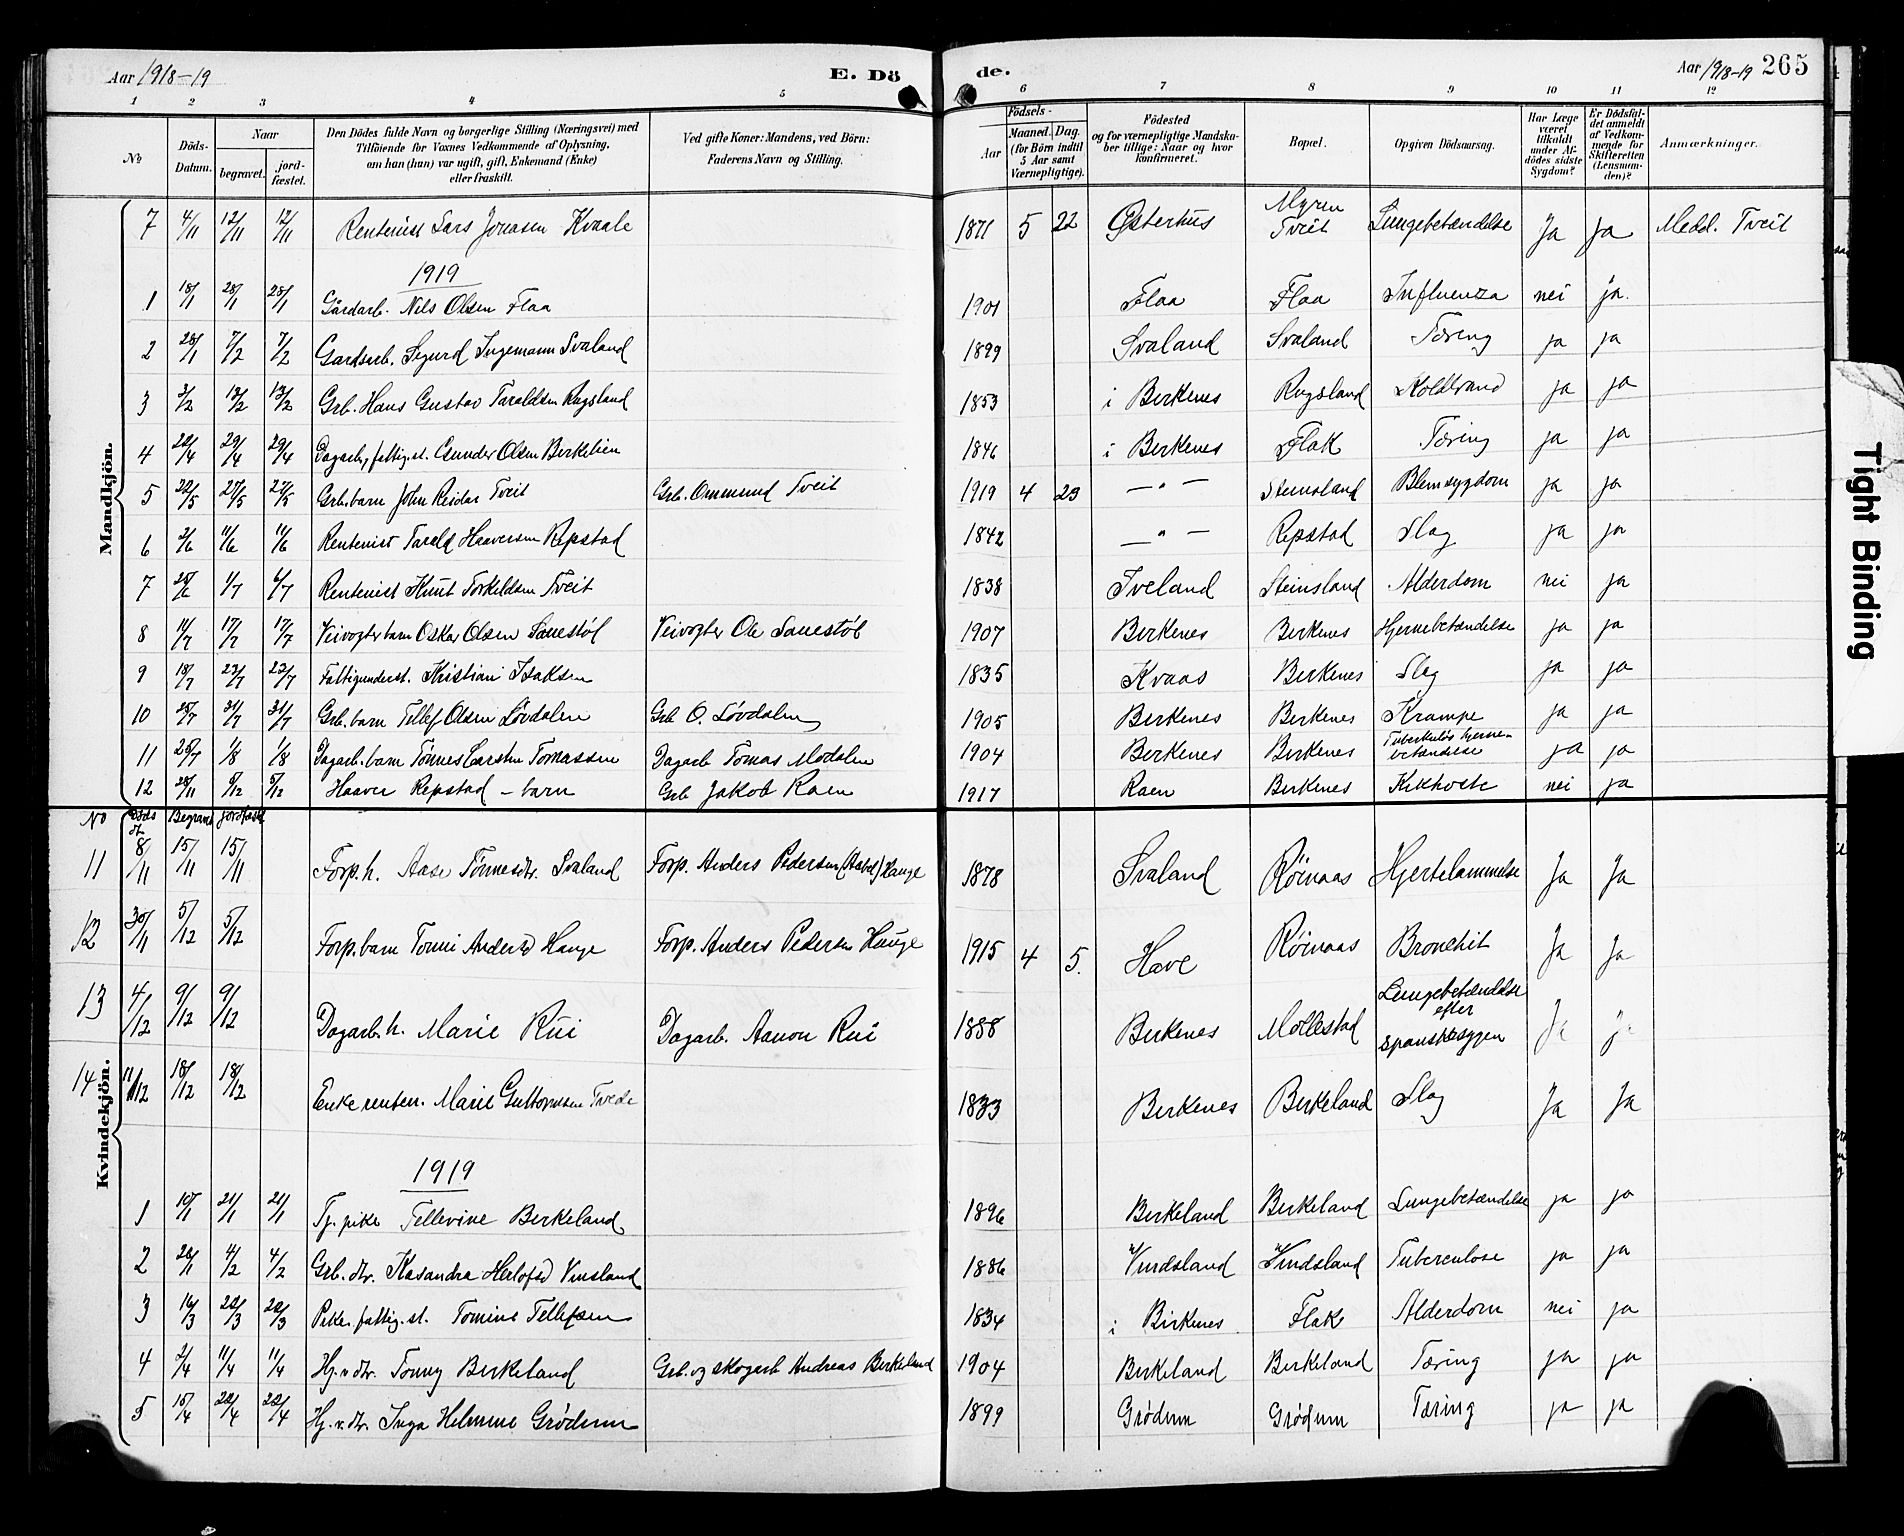 Aar 1918-19 E. Dö
de. Aar 1918-19 265
1 2 3 4 5 6 7 8 9 10 11 12
No Döds-Datum. Naar begravet. jord-fæstet. Den Dödes fulde Navn og borgerlige Stilling (Næringsvei) med Tilföiende for Voxnes Vedkommende af Oplysning, om han (hun) var ugift, gift, Enkemand (Enke) eller fraskilt. Ved gifte Koner: Mandens, ved Börn: Faderens Navn og Stilling. Födsels- Aar Maaned. Dag. (for Börn indtil 5 Aar samt Værnepligtige). Födested og for værnepligtige Mandskaber tillige: Naar og hvor konfirmeret. Bopæl. Opgiven Dödsaarsag. Har Læge været tilkaldt under Afdödes sidste Sygdom? Er Dödsfaldet anmeldt af Vedkommende for Skifteretten (Lensmanden)? Anmærkninger.
Mandkjön.
7 4/11 12/11 12/11 Rentenist Lars Jonasen Kvaale 1871 5 22 Østerhus Myren Tveit Lungebetændelse Ja Ja Medd. Tveit
1919
1 18/1 28/1 28/1 Gårdarb. Nils Olsen Flaa 1901 Flaa Flaa Influenza nei ja.
2 28/1 7/2 7/2 Gardsarb. Sigurd Ingemann Svaland 1899 Svaland Svaland Tæring ja ja
3 3/2 13/2 13/2 Grb. Hans Gustav Taraldsen Rugsland 1853 i Birkenes Rugsland Koldbrand ja ja
4 22/4 29/4 29/4 Dagarb, fattig.st. Gunder Olsen Birkelien 1846 i Birkenes Flak Tæring ja ja
5 22/5 27/5 27/5 Grb. barn John Reidar Tveit Grb. Ommund Tveit 1919 4 23 — " — Steinsland Blemsygdom ja ja
6 2/6 11/6 11/6 Rentenist Tarald Haaversen Repstad 1842 — " — Repstad Slag ja ja
7 25/6 4/7 4/7 Rentenist Knut Torkeldsen Tveit 1838 Iveland Steinsland Alderdom nei ja
8 11/7 17/7 17/7 Veivogter barn Oskar Olsen Sanestöl Veivogter Ole Sanestöl 1907 Birkenes Birkenes Hjernebetændelse ja ja
9 18/7 23/7 23/7 Fattigunderst. Kristian Isaksen 1835 Kvaas Birkenes Slag ja ja
10 25/7 31/7 31/7 Grb. barn Tellef Olsen Lövdalen Grb O. Lövdalen 1905 Birkenes Birkenes Krampe ja ja
11 25/7 1/8 1/8 Dagarb. barn Tönnes Carsten Tomassen Dagarb Tomas Modalen 1904 Birkenes Birkenes Tuberkuløs hjernebetændelse ja ja
12 28/11 5/12 5/12 Haaver Repstad - barn Grb Jakob Raen 1917 Raen Birkenes Kikhoste nei ja
Kvindekjön.
No Döds dt. Begravet Jordfæstet
11 8/11 15/11 15/11 Forp. h. Aase Tönnesdtr. Svaland Forp. Anders Pedersen Hauge 1878 Svaland Röinaas Hjertelammelse Ja Ja
12 30/11 5/12 5/12 Forp. barn Tomi Andersd Hauge Forp. Anders Pedersen Hauge 1915 4 5. Have Röinaas Bronchit Ja Ja
13 4/12 9/12 9/12 Dagarb. h. Marie Rui Dagarb. Aanon Rui 1888 Birkenes Mollestad Lungebetændelse efter spanskesygen Ja ja
14 11/12 18/12 18/12 Enke renten. Marie Guttormsen Tvede 1833 Birkenes Birkeland Slag Ja Ja
1919
1 10/1 21/1 21/1 Tj. pike Tellevine Birkeland 1896 Birkeland Birkeland Lungebetændelse ja ja
2 28/1 4/2 4/2 Grb. dtr. Kasandra Herlofsd Vinsland 1886 Vindsland Vindsland Tuberculose ja ja
3 16/3 22/3 22/3 Pike. fattig. st. Tomine Tellefsen 1834 i Birkenes Flak Alderdom nei ja
4 2/4 11/4 11/4 Hj.v. dtr. Tonny Birkeland Grb. og skogarb Andreas Birkeland 1904 Birkeland Birkeland Tæring ja ja
5 15/4 22/4 22/4 Hj. v. dtr. Inga Helmine Grödum 1899 Grödum Grödum Tæring ja ja
Tight Binding